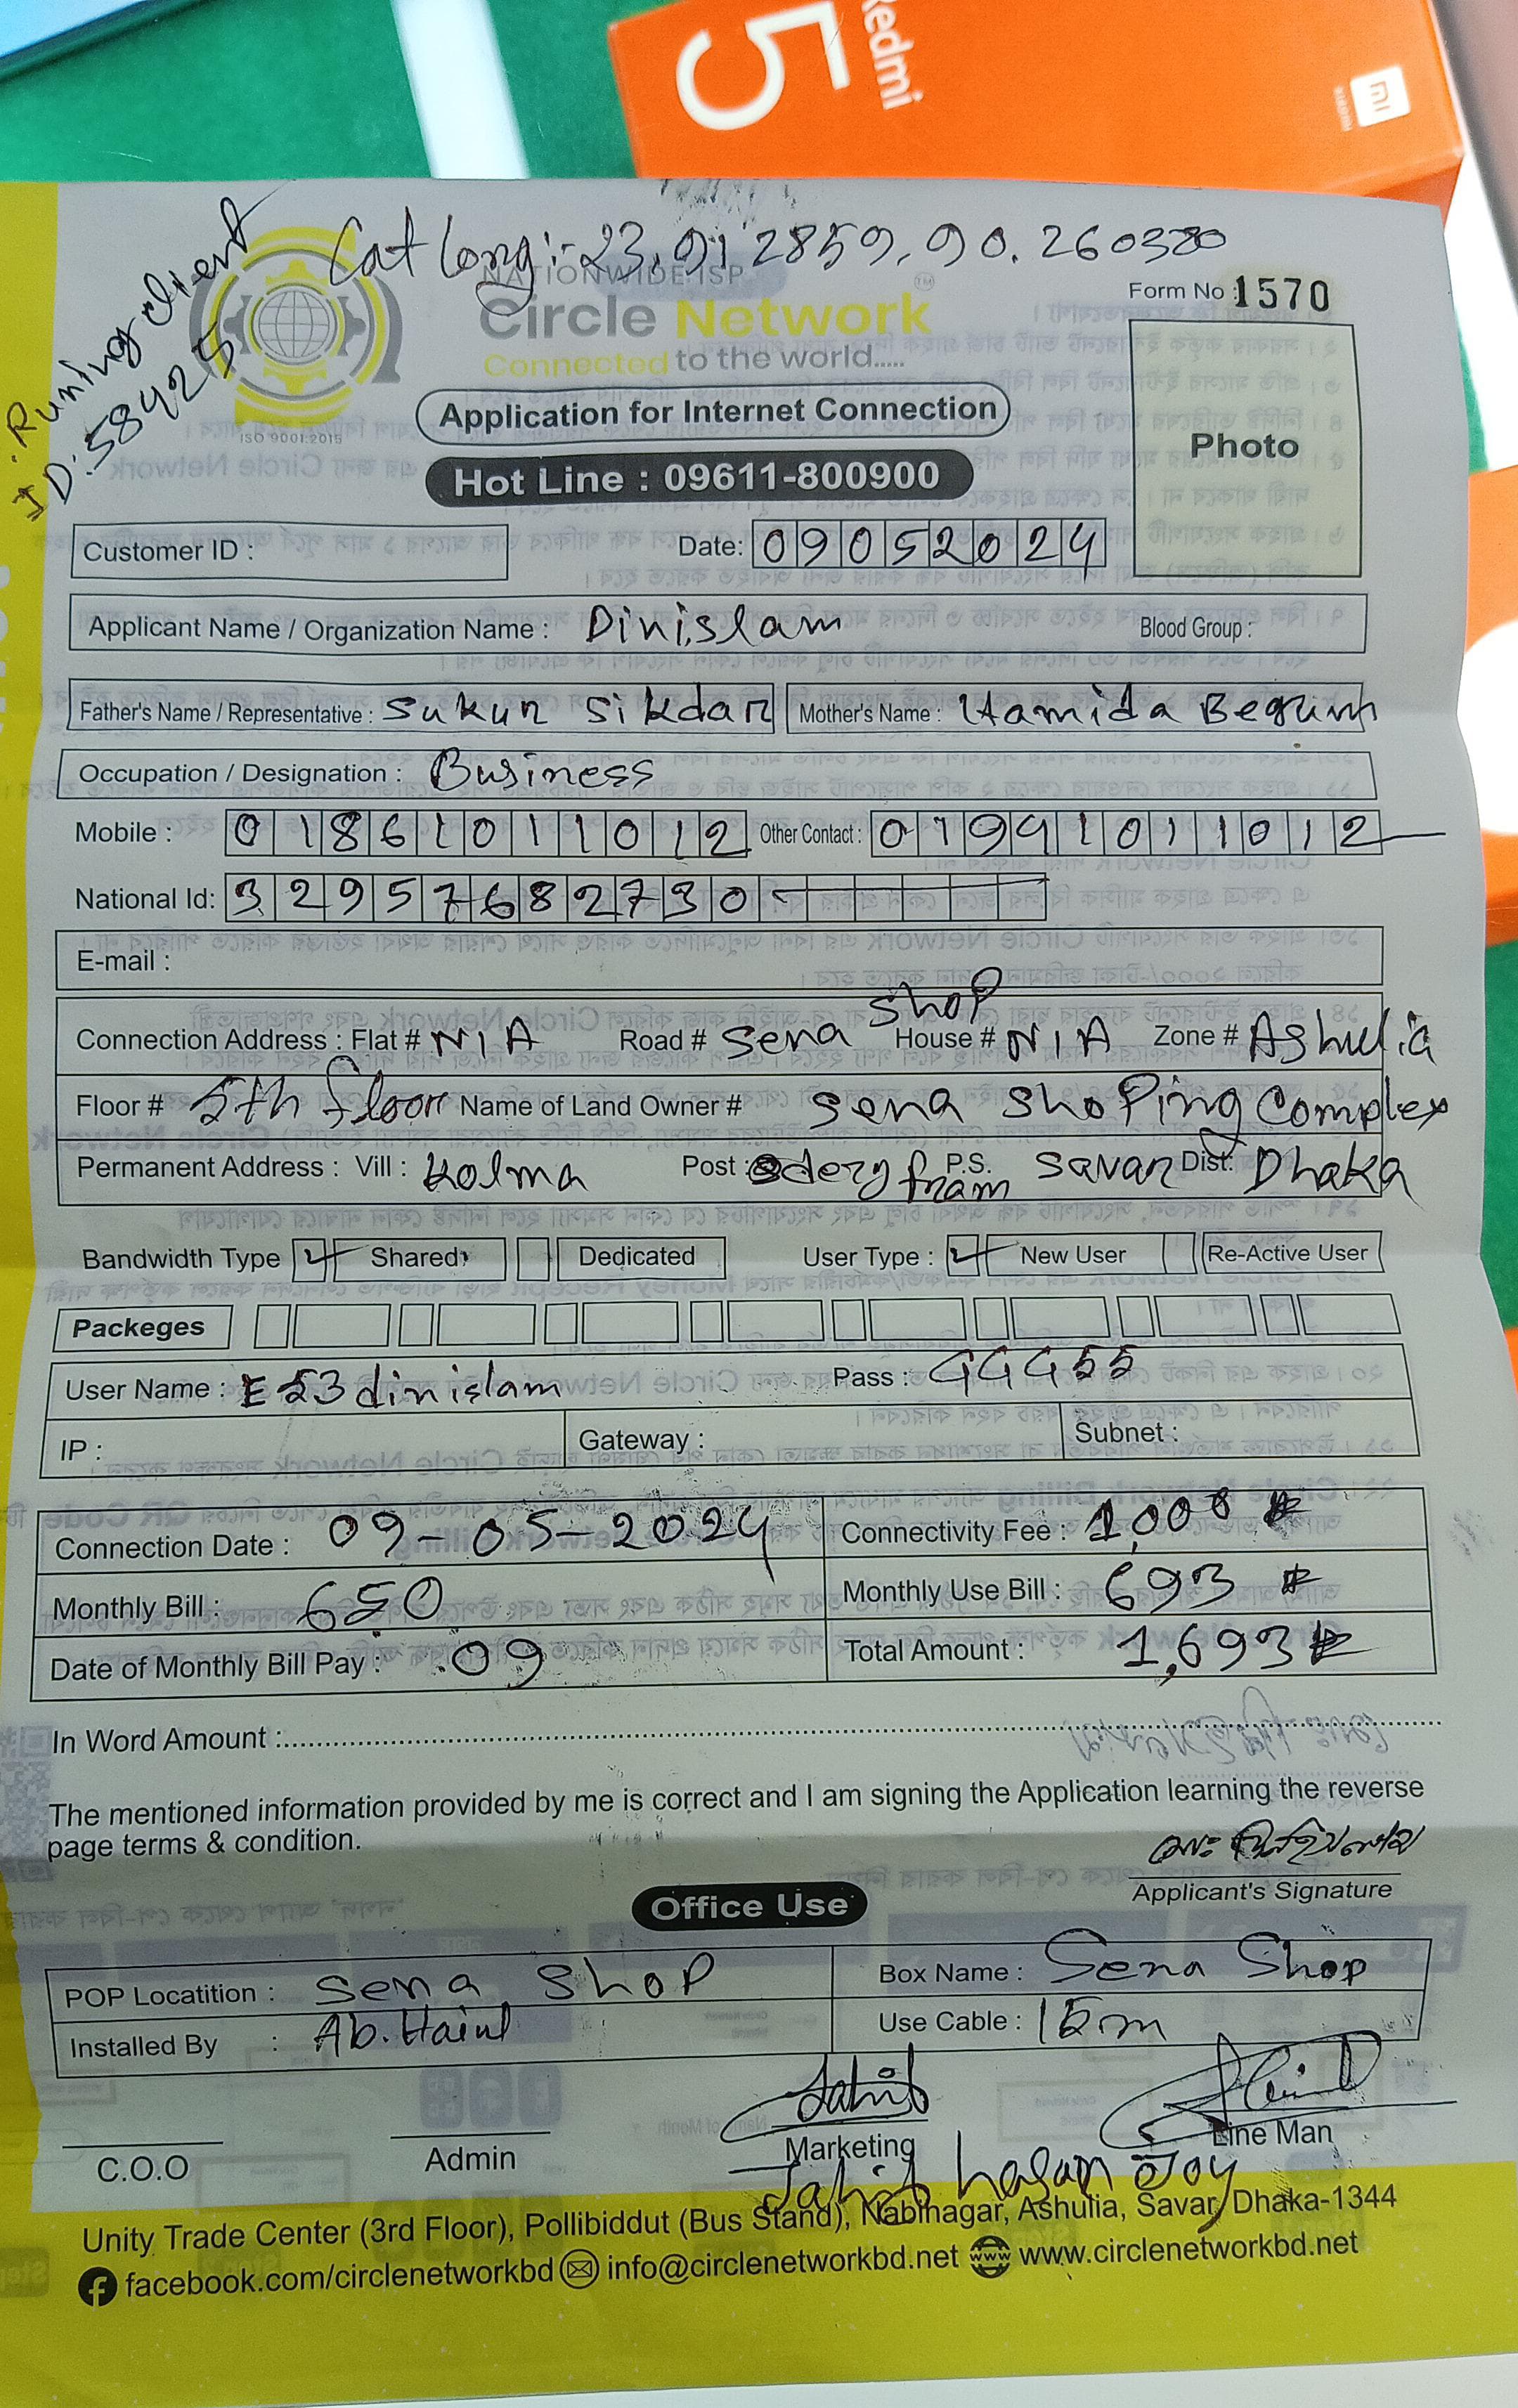 5
Redmi
mi
xiaomi
Runing client
ID:58425
Cat long:- 23.912859, 90.260380
NATIONWIDE ISP
Circle Network TM
Connected to the world.....
ISO 9001:2015
Form No : 1570
Application for Internet Connection
Photo
Hot Line : 09611-800900
Customer ID :
Date: 09052024
Applicant Name / Organization Name : Dinislam Blood Group :
Father's Name / Representative : Sukur Sikdar Mother's Name : Hamida Begum
Occupation / Designation : Business
Mobile : 01861011012 Other Contact : 01991011012
National Id: 32957682730
E-mail :
Connection Address : Flat # N/A Road # Sena Shop House # N/A Zone # Ashulia
Floor # 5th floor Name of Land Owner # Sena Shoping Complex
Permanent Address : Vill : Kolma Post : P.S. Savar Dist: Dhaka
Bandwidth Type Shared Dedicated User Type : New User Re-Active User
Packeges
User Name : E53dinislam Pass : GGG55
IP : Gateway : Subnet :
Connection Date : 09-05-2024 Connectivity Fee : 1,000
Monthly Bill : 650 Monthly Use Bill : 693
Date of Monthly Bill Pay : 09 Total Amount : 1,693
In Word Amount :
The mentioned information provided by me is correct and I am signing the Application learning the reverse
page terms & condition.
মোঃ দ্বিনইসলাম
Applicant's Signature
Office Use
POP Locatition : Sena Shop Box Name : Sena Shop
Installed By : Ab. Haiul Use Cable : 15m
C.O.O Admin Marketing Line Man
Jahid hasan Joy
Unity Trade Center (3rd Floor), Pollibiddut (Bus Stand), Nabinagar, Ashulia, Savar, Dhaka-1344
facebook.com/circlenetworkbd info@circlenetworkbd.net www.circlenetworkbd.net